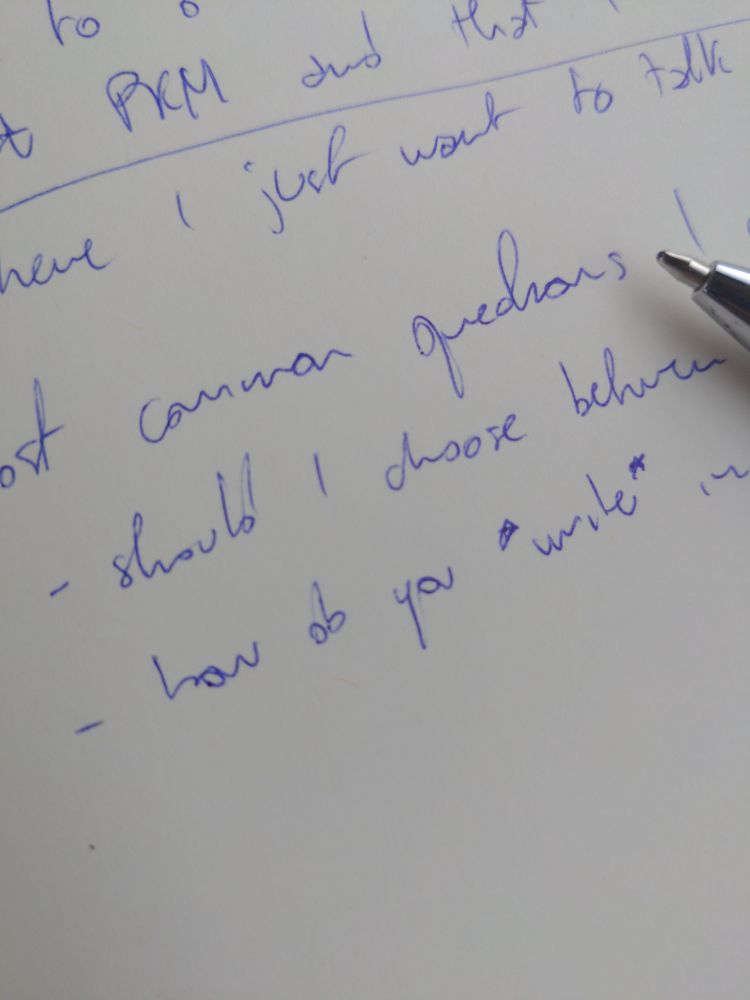 to
PKM and that
here I just want to talk
most common questions I
- should I choose between
- how do you *write* in